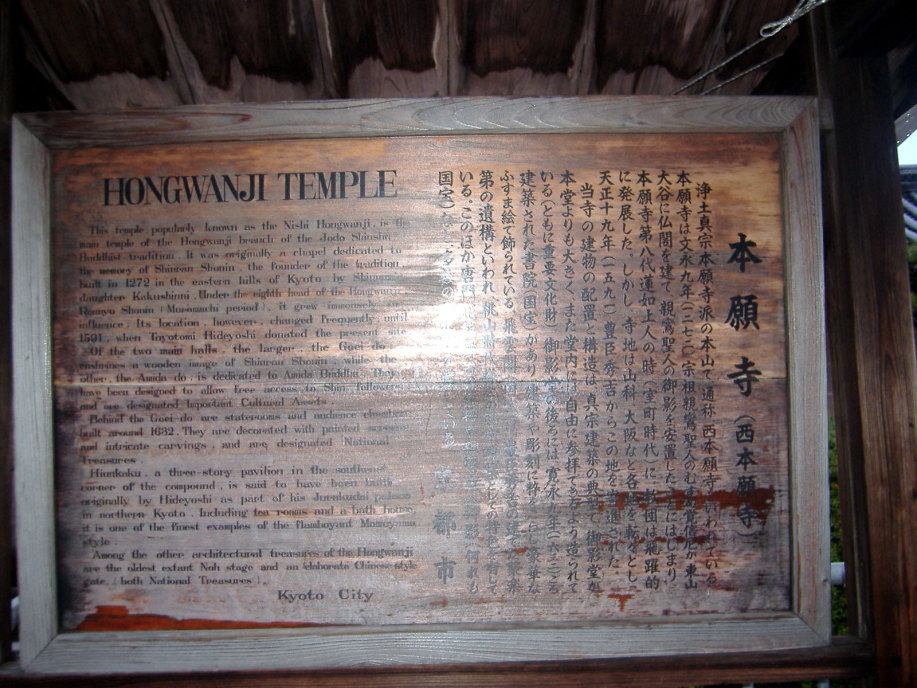 HONGWANJI TEMPLE
This temple popularly known as the Nishi Hongwanji, is the
main temple of the Hongwanji branch of the Jodo Shinshu
Buddhist tradition. It was originally a chapel dedicated to
the memory of Shinran Shonin, the founder of the tradition,
built in 1272 in the eastern hills of Kyoto by Shinran's
daughter Kakushinni. Under the eighth head of the Hongwanji,
Rennyo Shonin (Muromachi period), it grew immensely in
influence. Its location, however, changed frequently until
1591, when Toyotomi Hideyoshi donated the present site.
Of the two main halls, the larger, the Goei do,
enshrines a wooden image of Shinran Shonin, while the
other, the Amida do, is dedicated to Amida Buddha. They
have been designed to allow free access to Shin followers
and are designated Important Cultural Assets.
Behind the Goei do are staterooms and audience chambers
built around 1632. They are decorated with painted screens
and intricate carvings, and are designated National
Treasures.
Hiunkaku, a three-story pavilion in the southeast
corner of the compound, is said to have been built
originally by Hideyoshi as part of his Jurakudai palace
in northern Kyoto. Including tea rooms and a bath house,
it is one of the finest examples of the flamboyant Momoyama
style.
Among the other architectural treasures of the Hongwanji
are the oldest extant Noh stage and an elaborate Chinese-style
gate. (both National Treasures).
Kyoto City
本願寺(西本願寺)
浄土真宗本願寺派の本山で、通称、西本願寺といわれている。
本願寺は文永九年(一二七二)宗祖親鸞聖人のむすめ覚信尼が東山
大谷に仏閣を建て、親鸞聖人の御影を安置したことにはじまり、
本願寺第八代蓮如上人の時(室町時代)に、教団は飛躍的
に発展した。しかし、寺地は山科、大阪など各地を転々とし、
天正十九年(一五九一)豊臣秀吉からこの地を寄進された。
当寺の建物の配置と構造は、真宗建築の典型で、御影堂が
本堂よりも大きく、また堂内は自由に参拝できるよう造られて
いる(ともに重要文化財)。御影堂の後ろには、寛永九年(一六三二)ころ
建築された書院(国宝)があり、建築や彫刻に粋をこらし、豪華な
ふすま絵で飾られている。飛雲閣(国宝)は
第の遺構といわれ、桃山時代
いる。このほか
国宝)など
京都市